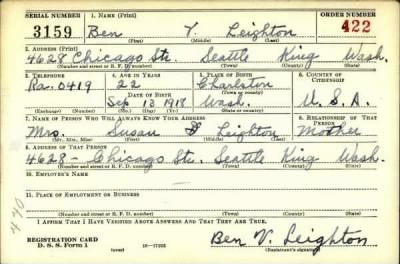 SERIAL NUMBER 1. NAME (Print) ORDER NUMBER
3159 Ben V. Leighton 422
(First) (Middle) (Last)
2. ADDRESS (Print)
4628 Chicago St. Seattle King Wash.
(Number and street or R. F. D. number) (Town) (County) (State)
3. TELEPHONE 4. AGE IN YEARS 5. PLACE OF BIRTH 6. COUNTRY OF CITIZENSHIP
Ra. 0419 22 Charleston
DATE OF BIRTH (Town or county)
Sep 13 1918 Wash. U.S.A.
(Exchange) (Number) (Mo.) (Day) (Yr.) (State or country)
7. NAME OF PERSON WHO WILL ALWAYS KNOW YOUR ADDRESS 8. RELATIONSHIP OF THAT PERSON
Mrs. Susan Leighton Mother
(Mr., Mrs., Miss) (First) (Middle) (Last)
9. ADDRESS OF THAT PERSON
4628 - Chicago St. Seattle King Wash.
(Number and street or R. F. D. number) (Town) (County) (State)
10. EMPLOYER'S NAME
11. PLACE OF EMPLOYMENT OR BUSINESS
(Number and street or R. F. D. number) (Town) (County) (State)
I AFFIRM THAT I HAVE VERIFIED ABOVE ANSWERS AND THAT THEY ARE TRUE.
REGISTRATION CARD
D. S. S. Form 1 (over) Ben V. Leighton
(Registrant's signature)